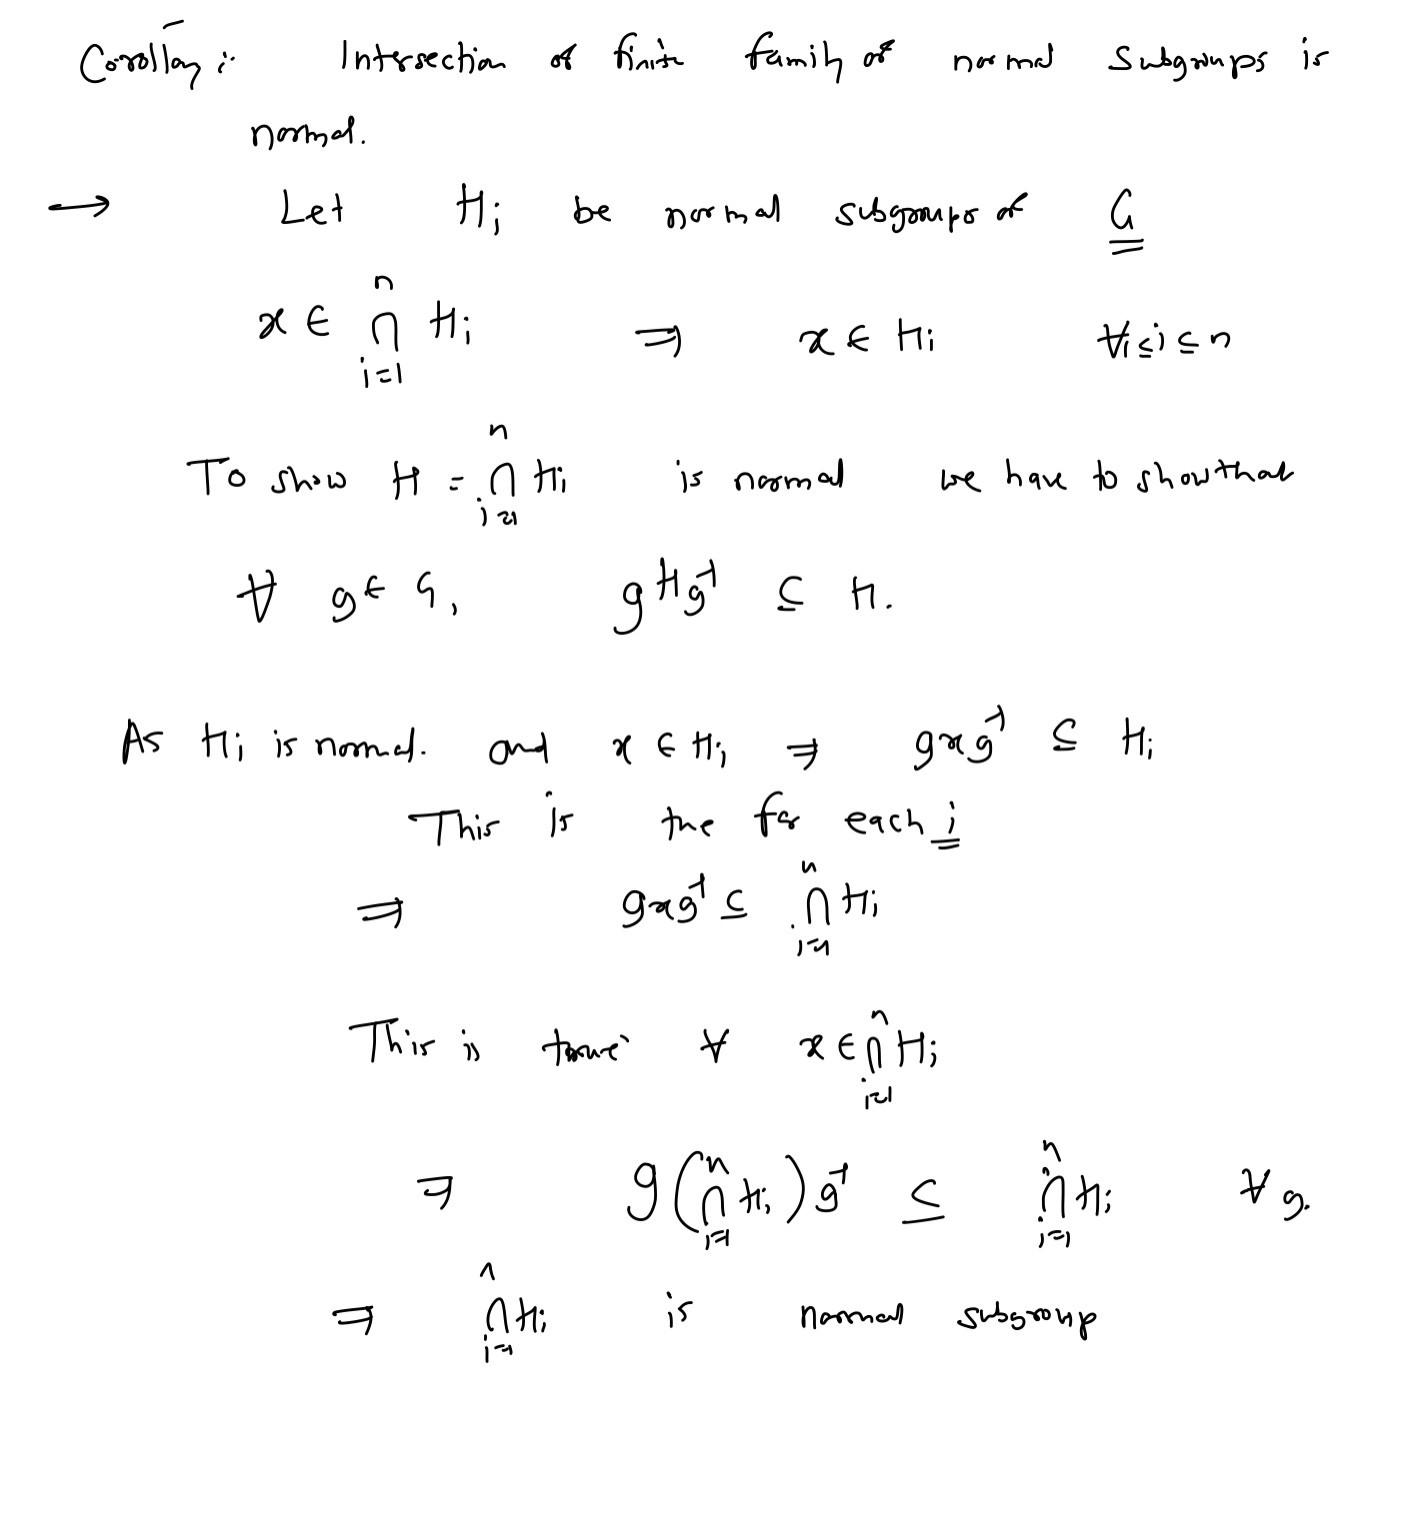 Corollary :- Intersection of finite family of normal subgroups is
normal.
→ Let Hᵢ be normal subgroups of G
x ∈ ⋂ᵢ₌₁ⁿ Hᵢ ⇒ x ∈ Hᵢ ∀ 1 ≤ i ≤ n
To show H = ⋂ᵢ₌₁ⁿ Hᵢ is normal we have to show that
∀ g ∈ G, gHg⁻¹ ⊆ H.
As Hᵢ is normal. and x ∈ Hᵢ ⇒ gxg⁻¹ ⊆ Hᵢ
This is true for each i
⇒ gxg⁻¹ ⊆ ⋂ᵢ₌₁ⁿ Hᵢ
This is true ∀ x ∈ ⋂ᵢ₌₁ⁿ Hᵢ
⇒ g(⋂ᵢ₌₁ⁿ Hᵢ)g⁻¹ ⊆ ⋂ᵢ₌₁ⁿ Hᵢ ∀ g.
⇒ ⋂ᵢ₌₁ⁿ Hᵢ is normal subgroup